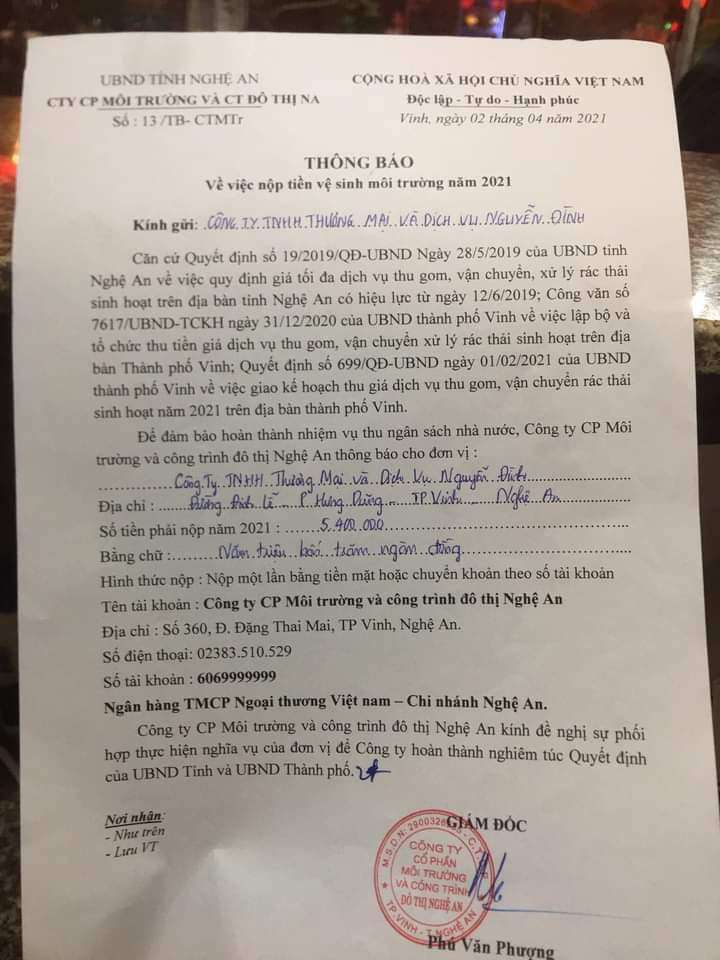 UBND TỈNH NGHỆ AN
CTY CP MÔI TRƯỜNG VÀ CT ĐÔ THỊ NA
Số : 13 /TB- CTMTr
CỘNG HOÀ XÃ HỘI CHỦ NGHĨA VIỆT NAM
Độc lập - Tự do - Hạnh phúc
Vinh, ngày 02 tháng 04 năm 2021
THÔNG BÁO
Về việc nộp tiền vệ sinh môi trường năm 2021
Kính gửi: CÔNG TY TNHH THƯƠNG MẠI VÀ DỊCH VỤ NGUYỄN ĐÌNH
Căn cứ Quyết định số 19/2019/QĐ-UBND Ngày 28/5/2019 của UBND tỉnh
Nghệ An về việc quy định giá tối đa dịch vụ thu gom, vận chuyển, xử lý rác thải
sinh hoạt trên địa bàn tỉnh Nghệ An có hiệu lực từ ngày 12/6/2019; Công văn số
7617/UBND-TCKH ngày 31/12/2020 của UBND thành phố Vinh về việc lập bộ và
tổ chức thu tiền giá dịch vụ thu gom, vận chuyển xử lý rác thải sinh hoạt trên địa
bàn Thành phố Vinh; Quyết định số 699/QĐ-UBND ngày 01/02/2021 của UBND
thành phố Vinh về việc giao kế hoạch thu giá dịch vụ thu gom, vận chuyển rác thải
sinh hoạt năm 2021 trên địa bàn thành phố Vinh.
Để đảm bảo hoàn thành nhiệm vụ thu ngân sách nhà nước, Công ty CP Môi
trường và công trình đô thị Nghệ An thông báo cho đơn vị :
Công Ty TNHH Thương Mại và Dịch Vụ Nguyễn Đình
Địa chỉ : Đường Đình Lễ P Hưng Dũng TP Vinh Nghệ An
Số tiền phải nộp năm 2021 : 5.400.000
Bằng chữ : Năm triệu bốn trăm ngàn đồng
Hình thức nộp : Nộp một lần bằng tiền mặt hoặc chuyển khoản theo số tài khoản
Tên tài khoản : Công ty CP Môi trường và công trình đô thị Nghệ An
Địa chỉ : Số 360, Đ. Đặng Thai Mai, TP Vinh, Nghệ An.
Số điện thoại: 02383.510.529
Số tài khoản : 6069999999
Ngân hàng TMCP Ngoại thương Việt nam – Chi nhánh Nghệ An.
Công ty CP Môi trường và công trình đô thị Nghệ An kính đề nghị sự phối
hợp thực hiện nghĩa vụ của đơn vị để Công ty hoàn thành nghiêm túc Quyết định
của UBND Tỉnh và UBND Thành phố.
Nơi nhận:
- Như trên
- Lưu VT
GIÁM ĐỐC
CÔNG TY
CỔ PHẦN
MÔI TRƯỜNG
VÀ CÔNG TRÌNH
ĐÔ THỊ NGHỆ AN
TP.VINH - T.NGHỆ AN
Phú Văn Phượng